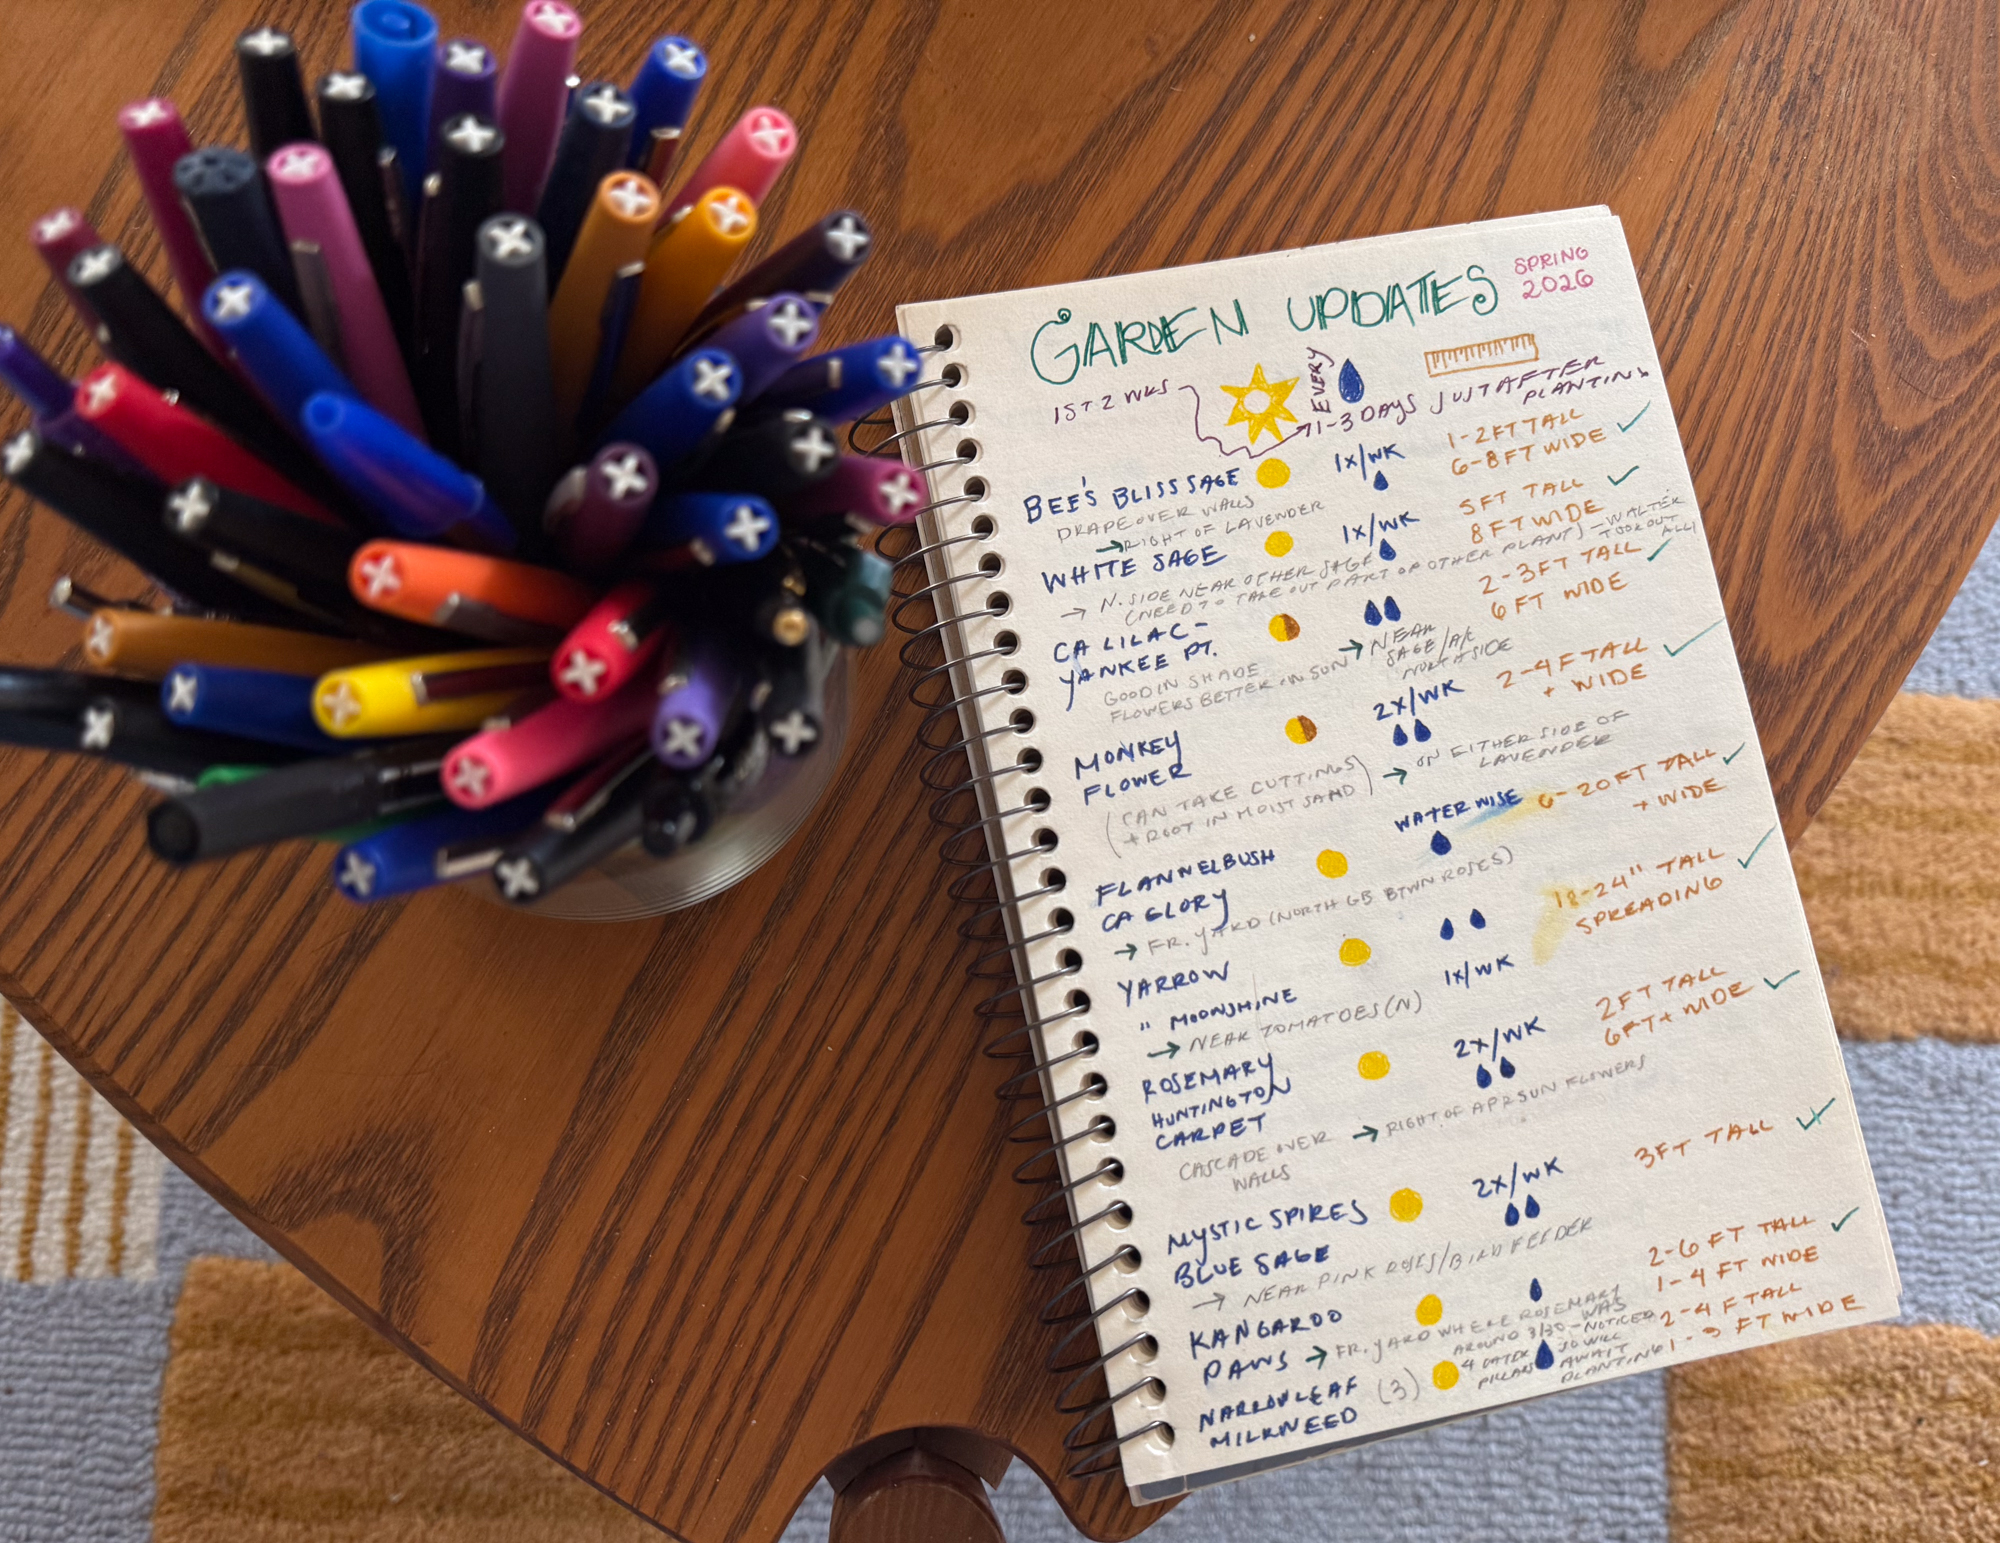 GARDEN UPDATES
SPRING
2026
1ST 2 WKS
EVERY
1-3 DAYS JUST AFTER
PLANTING
BEE'S BLISS SAGE
1X/WK
1-2 FT TALL
6-8 FT WIDE
DRAPE OVER WALLS
RIGHT OF LAVENDER
WHITE SAGE
1X/WK
5 FT TALL
8 FT WIDE
→ N. SIDE NEAR OTHER SAGE
(NEED TO TAKE OUT PART OF OTHER PLANT) - WALTER
TOOK OUT
ALL!
CA LILAC -
YANKEE PT.
2-3 FT TALL
6 FT WIDE
GOOD IN SHADE
FLOWERS BETTER IN SUN
→ NEAR
SAGE/A/C
NORTH SIDE
MONKEY
FLOWER
2X/WK
2-4 FT TALL
+ WIDE
(CAN TAKE CUTTINGS
+ ROOT IN MOIST SAND)
→ ON EITHER SIDE OF
LAVENDER
FLANNELBUSH
CA GLORY
WATER WISE
6-20 FT TALL
+ WIDE
→ FR. YARD (NORTH GB BTWN ROSES)
YARROW
" MOONSHINE
1X/WK
18-24" TALL
SPREADING
→ NEAR TOMATOES (N)
ROSEMARY
HUNTINGTON
CARPET
2X/WK
2 FT TALL
6 FT + WIDE
CASCADE OVER
WALLS
→ RIGHT OF APR SUN FLOWERS
MYSTIC SPIRES
BLUE SAGE
2X/WK
3 FT TALL
→ NEAR PINK ROSES/BIRD FEEDER
KANGAROO
PAWS
2-6 FT TALL
1-4 FT WIDE
→ FR. YARD WHERE ROSEMARY
WAS
NARROWLEAF
MILKWEED
(3)
AROUND 3/30 - NOTICED
4 CATER
PILLARS
SO WILL
AWAIT
PLANTING
2-4 FT TALL
1-3 FT WIDE